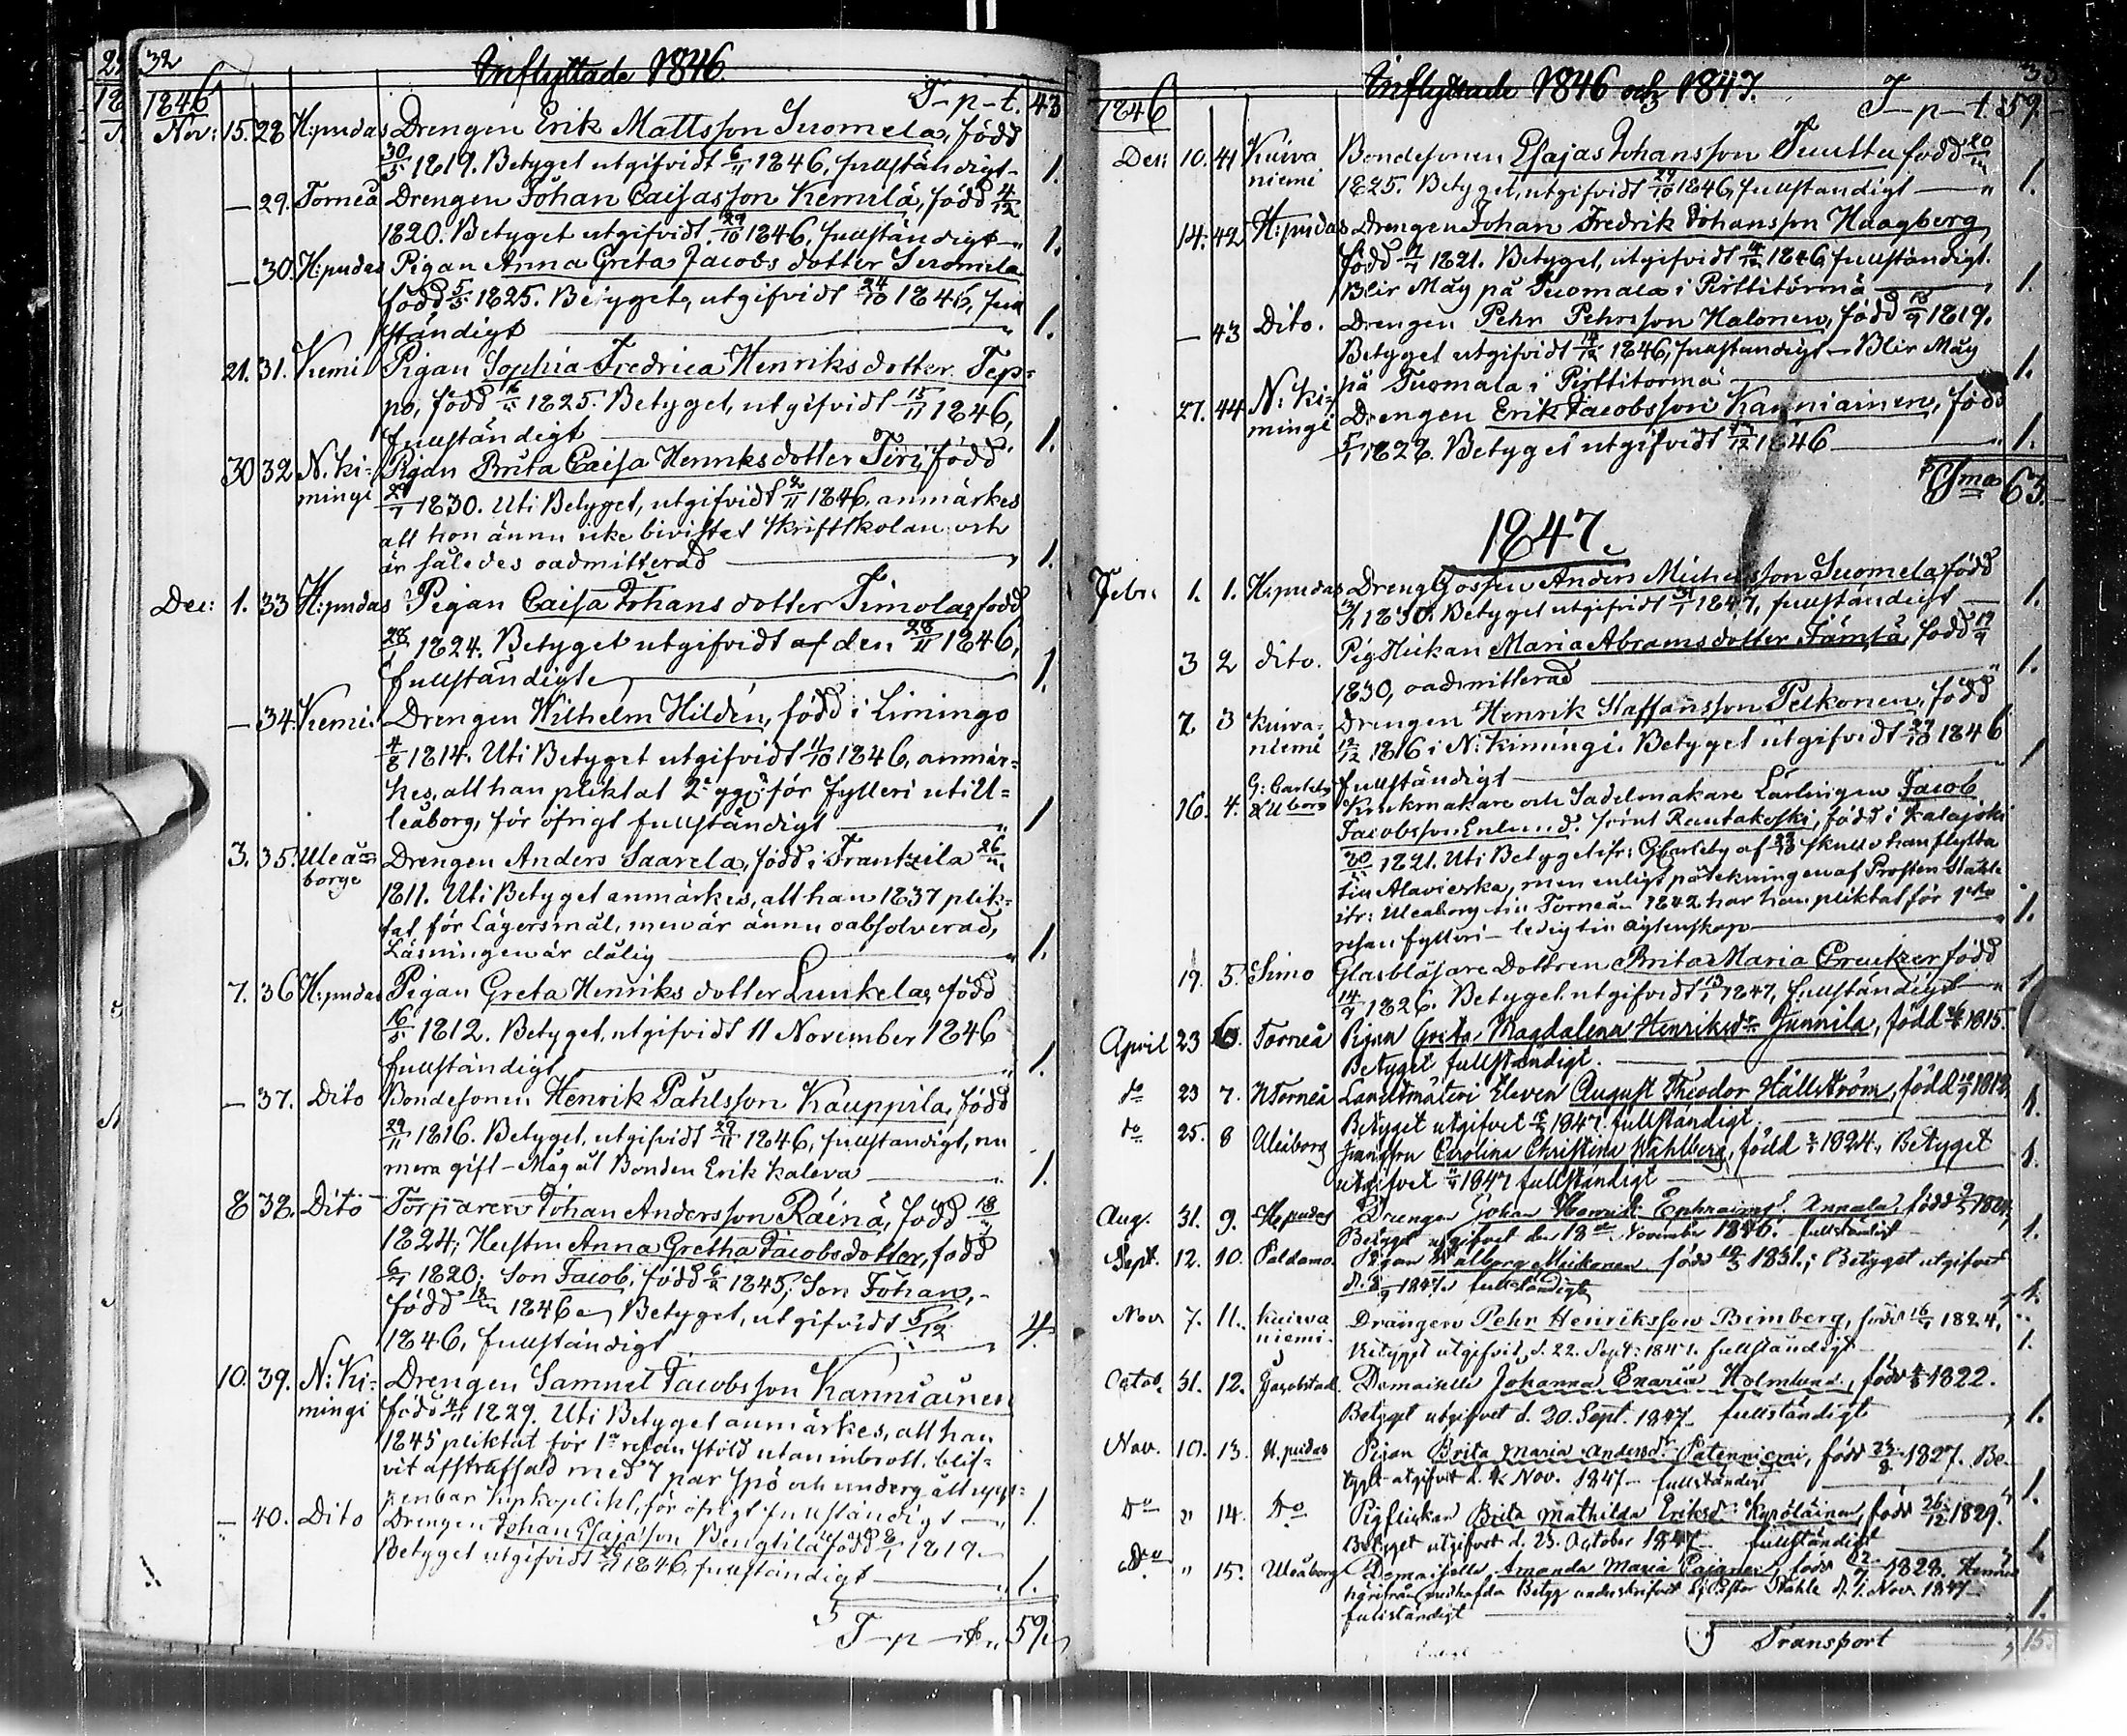 32
Inflyttade 1846
1846 T-p-t. 43
Nov: 15. 28 H:pudas Drengen Erik Mattsson Suomela, född
30/5 1819. Betyget utgifvidt 6/11 1846, fullständigt 1.
— 29. Torneå Drengen Johan Caisasson Kemilä, född 4/12
1820. Betyget utgifvidt 29/10 1846, fullständigt 1.
— 30. H:pudas Pigan Anna Greta Jacobs dotter Suomela
född 5/5 1825. Betyget, utgifvidt 24/10 1846, full
ständigt 1.
21. 31. Kemi Pigan Sophia Fredrica Henriks dotter Tep=
po, född 1825. Betyget, utgifvidt 15/11 1846,
fullständigt 1.
30 32 N. Ki= Pigan Brita Caisa Henriks dotter Tiri, född
mingi 1830. Uti Betyget, utgifvidt 1846, anmärkes
att hon ännu icke bivistat Skriftskolan och
är således oadmitterad 1.
Dec: 1. 33 H:pudas Pigan Caisa Johans dotter Timola, född
1824. Betyget utgifvidt af den 28/11 1846,
fullständigt 1.
— 34. Kemi. Drengen Wilhelm Hildén, född i Limingo
4/8 1814. Uti Betyget utgifvidt 1/10 1846, anmär=
kes, att han pliktat 2:e ggn för fylleri uti U=
leåborg, för öfrigt fullständigt 1
3. 35. Uleå= Drengen Anders Saarela, född i Frantzila 26/
borge 1811. Uti Betyget anmärkes, att han 1837 plik=
tat för Lägersmål, men är ännu oabsolverad,
Läsningen är dålig 1.
7. 36 H:pudas Pigan Greta Henriks dotter Lunkela, född
16/5 1812. Betyget, utgifvidt 11 November 1846
fullständigt 1.
— 37. Dito Bondesonen Henrik Påhlsson Kauppila, född
29/11 1816. Betyget, utgifvidt 29/11 1846, fullständigt, nu
mera gift - Måg åt Bonden Erik Kaleva 1.
8 38. Dito Torparen Johan Andersson Räinä, född 18/
1824; Hustru Anna Gretha Jacobsdotter, född
6/ 1820; Son Jacob, född 1845; Son Johan,
född 1846. Betyget, utgifvidt 5/12
1846, fullständigt 4.
10. 39. N: Ki= Drengen Samuel Jacobsson Kanniainen
mingi född 4/11 1829. Uti Betyget anmärkes, att han
1845 pliktat för 1:a resan stöld utan inbrott, blif=
vit afstraffad med 7 par Spö och undergått upp=
penbar Kyrkoplikt, för öfrigt fullständigt 1.
— 40. Dito Drengen Johan Esajasson Bengtilä född 8/1 1819.
Betyget utgifvidt 1846, fullständigt 1.
T-p-t. 59.
33
Inflyttade 1846 och 1847.
1846 T-p-t 59.
Dec: 10. 41 Kuiva Bondesonen Esajas Johansson Tuuttu född 20/
niemi 1825. Betyget, utgifvidt 29/10 1846, fullständigt 1.
14. 42 H:pudas Drengen Johan Fredrik Johansson Haagberg
född 1821. Betyget, utgifvidt 1846, fullständigt.
Blir Måg på Tuomala i Pirttitörmä 1.
— 43 Dito. Drengen Pehr Pehrsson Halonen, född 13/9 1819.
Betyget utgifvidt 14/12 1846, fullständigt — Blir Måg
på Tuomala i Pirttitörmä 1.
27. 44 N: Ki= Drengen Erik Jacobsson Kanniainen, född
mingi 5/1 1828. Betyget utgifvidt 1846 1.
Sma 63.
1847.
Febr: 1. 1. H:pudas Dreng Gossen Anders Michelsson Suomela född
1830. Betyget utgifvidt 1847, fullständigt 1.
3 2 dito. Pig Flickan Maria Abrams dotter Jämsä, född 19/9
1830, oadmitterad 1.
7. 3 Kuiva= Drengen Henrik Staffansson Pelkonen, född
niemi 1816 i N: Kimingi. Betyget utgifvidt 27/10 1846
fullständigt 1
16. 4. G: Carleby Krukmakare och Sadelmakare Lärlingen Jacob
Jacobsson Enlund. Rautakoski, född i Kalajoki
1821. Uti Betyget ifr: GCarleby af skulle han flytta
till Alavieska, men enligt påtekningen af Prosten Ståhle
ifr: Uleåborg till Torneå. 1842 har han pliktat för 1sta
resan fylleri - ledig till äqtenskap 1.
19. 5. Simo Glasblåsare Dottren Brita Maria Creutzer född
14/9 1826. Betyget utgifvidt 13/1 1847, fullständigt 1
April 23 6. Torneå Pigan Greta Magdalena Henriksdr Junnila, född 1815.
Betyget fullständigt.
do 23 7. NTorneå Landtmäteri Eleven August Theodor Hällström, född 1819,
Betyget utgifvet 1847. fullständigt. 1.
do 25. 8 Uleåborg Jungfru Carolina Christina Wahlberg, född 1824. Betyget
utgifvet 1847 fullständigt 1.
Aug. 31. 9. H:pudas Drengen Johan Henrik Ephraims: Annala, född
Betyget utgifvet den 18de November 1846. fullständigt 1.
Sept. 12. 10. Paldamo. Pigan Walborg Mukanen född 1831.; Betyget utgifvet
d. 1847 fullständigt 1.
Nov 7. 11. Kuiwa Drängen Pehr Henriksson Bimberg, född 16/ 1824.
niemi. Betyget utgifvit d. 22. Sept. 1847. fullständigt 1.
Octob. 31. 12. Jacobstad. Demoiselle Johanna Holmlund, född 1822.
Betyget utgifvet d. 20. Sept. 1847. fullständigt 1.
Nov. 10. 13. H.pudas Pigan Brita Maria Andersdr Patenniemi, född 23/8 1827. Be-
tyget utgifvet d. 4 Nov. 1847 fullständigt 1.
Do " 14. Do Pigflickan Brita Mathilda Eriksdr Kyröläinen, född 26/12 1829.
Betyget utgifvet d. 23. October 1847 fullständigt
Do " 15. Uleåborg Demoiselle Amanda Maria Pajanen, född 1828.
härifrån medhafda Betyg Ståhle d. 2. Nov. 1847
fullständigt 1.
Transport 15.